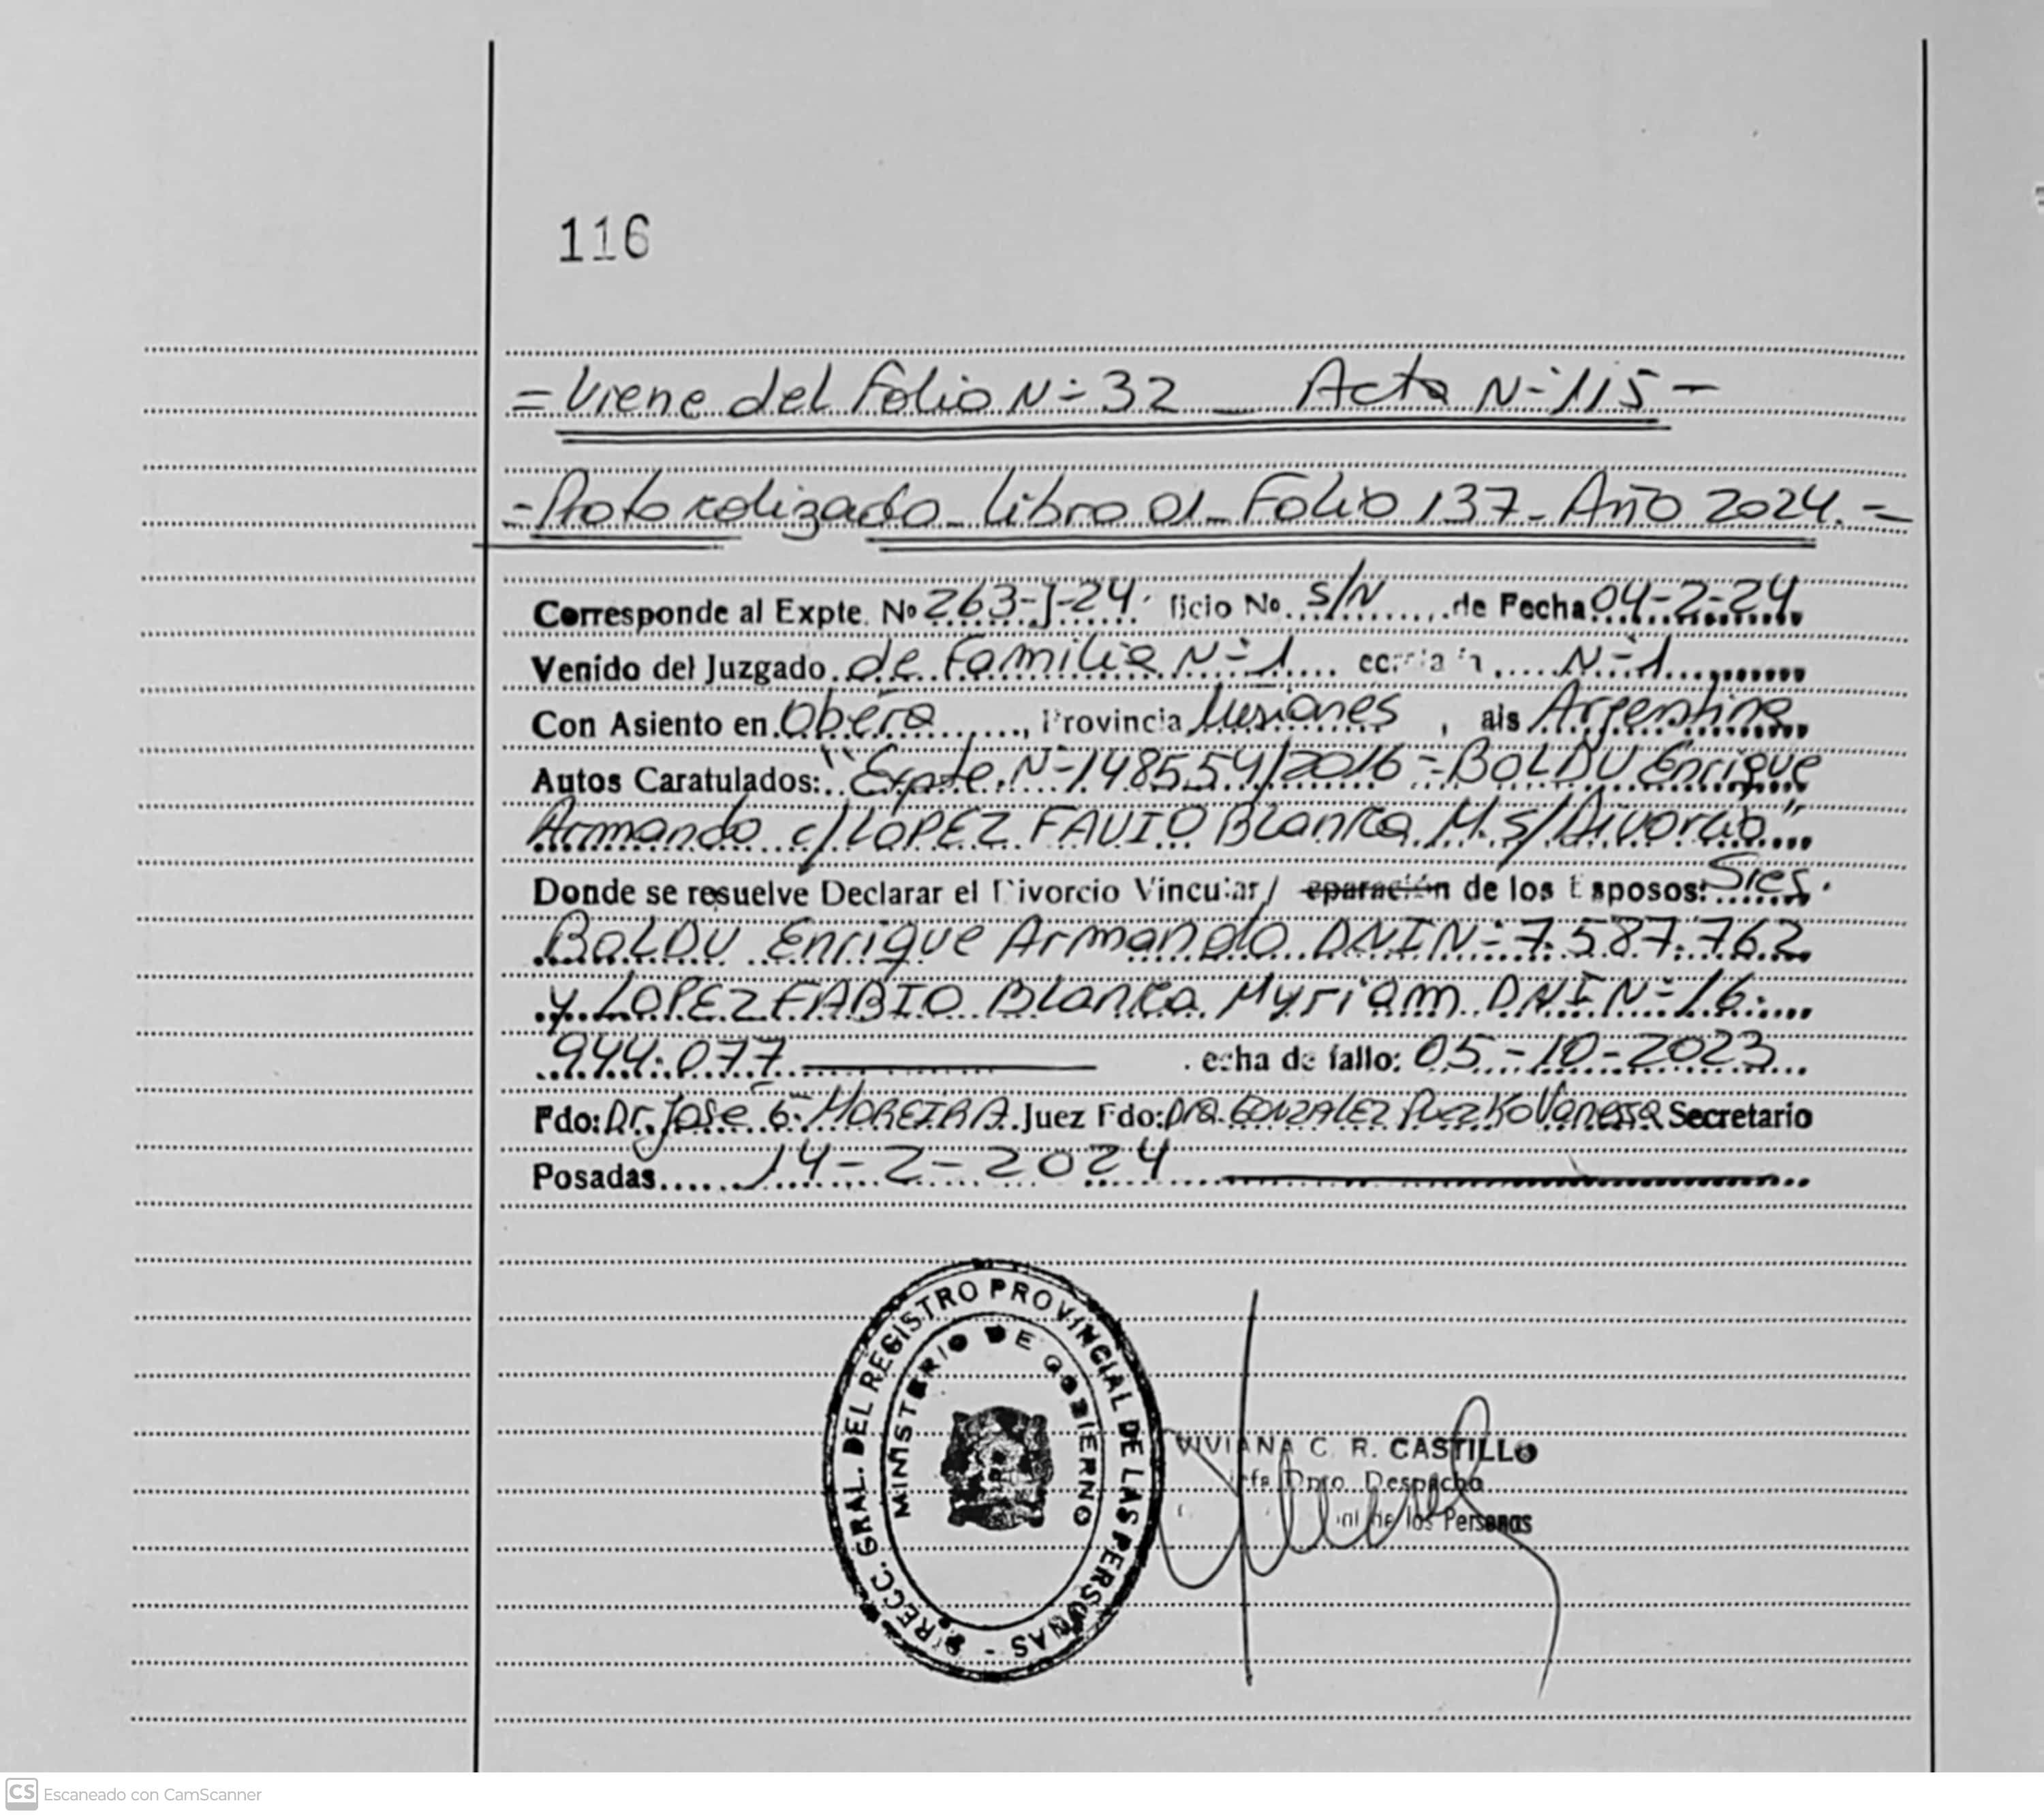 116
= Viene del Folio N° 32 _ Acta N° 115 -
- Protocolizado - Libro 01 - Folio 137 - Año 2024. =
Corresponde al Expte. Nº 263-J-24 ficio No. S/N de Fecha 04-2-24
Venido del Juzgado de Familia N° 1 N° 1
Con Asiento en Oberá, Provincia Misiones, ais Argentina
Autos Caratulados: "Expte. N° 148554/2016 - BOLDU Enrique
Armando c/ LOPEZ FAVIO Blanca M. s/ Divorcio"
Donde se resuelve Declarar el Divorcio Vincular / eparación de los Esposos: Sres.
BOLDU Enrique Armando DNI N° 7.587.762
y LOPEZ FABIO Blanca Myriam DNI N° 16.
944.077 echa de fallo: 05-10-2023
Fdo: Dr. José G. MOREIRA Juez Fdo: Dra. GONZALEZ Vanessa Secretario
Posadas 14-2-2024
DIRECC. GRAL. DEL REGISTRO PROVINCIAL DE LAS PERSONAS -
MINISTERIO DE GOBIERNO
VIVIANA C. R. CASTILLO
Dpto. Despacho
de las Personas
CS Escaneado con CamScanner